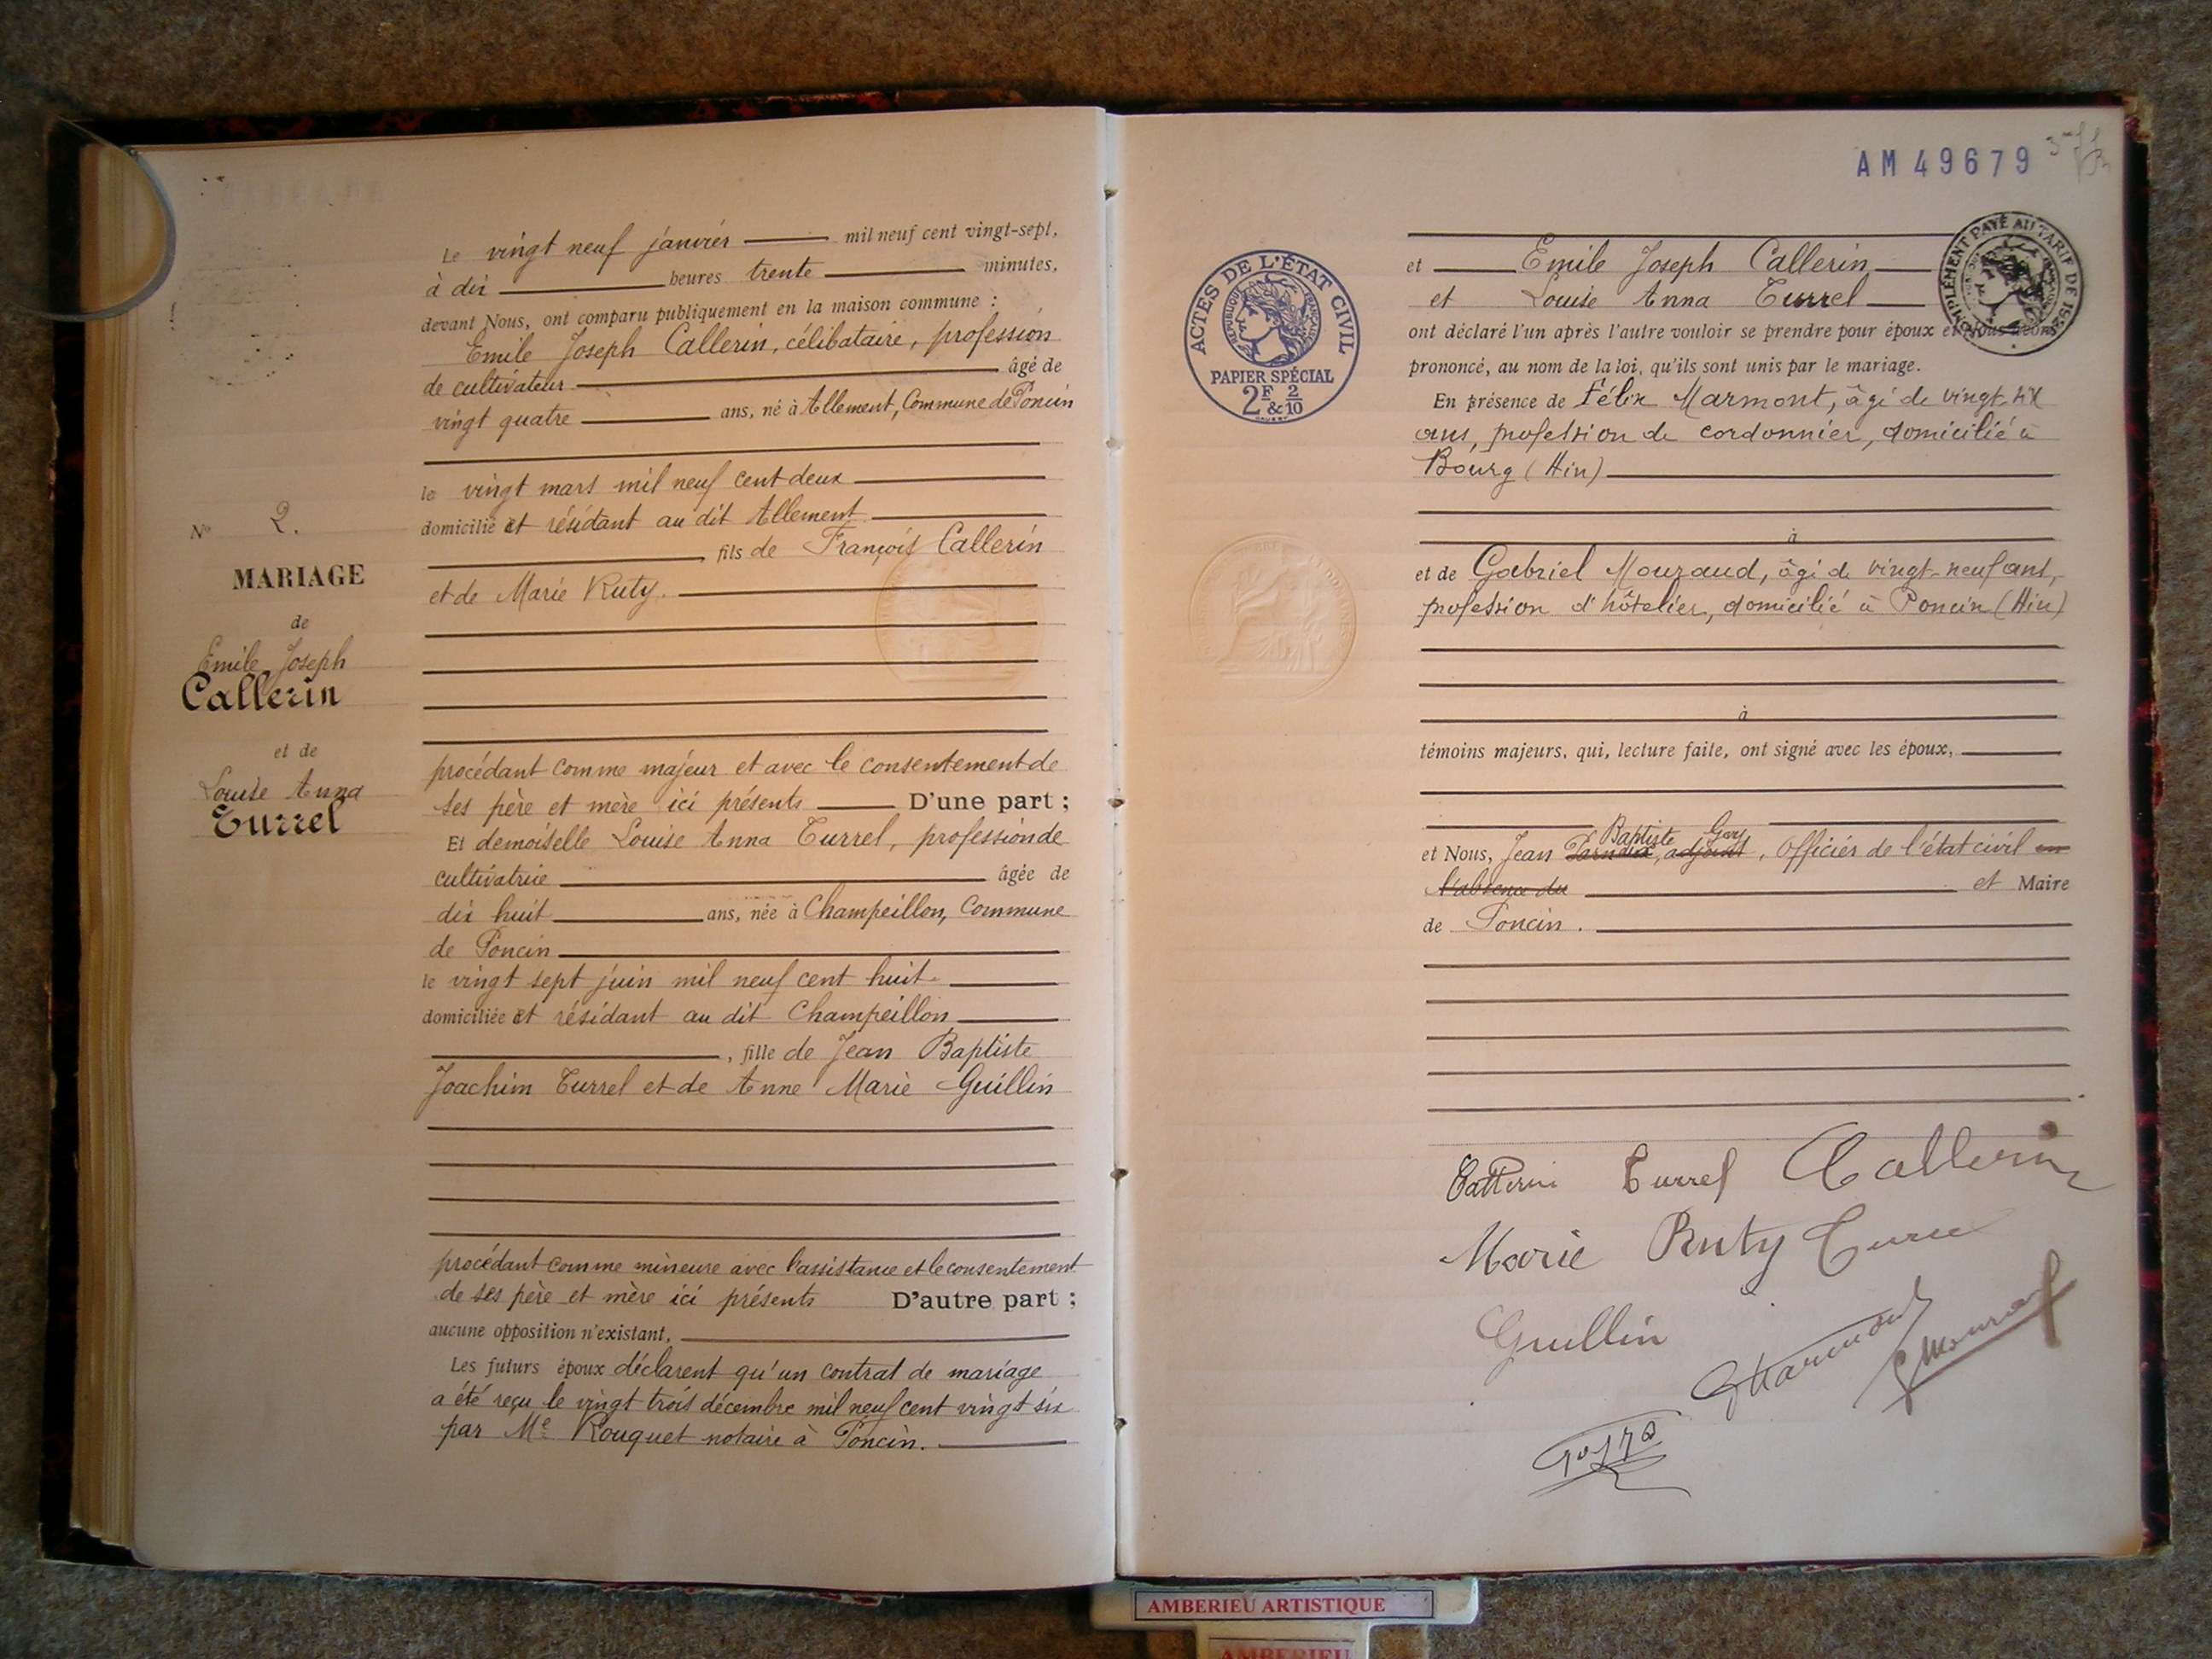 Le vingt neuf janvier mil neuf cent vingt-sept,
à dix heures trente minutes,
devant Nous, ont comparu publiquement en la maison commune :
Emile Joseph Callerin, célibataire, profession
de cultivateur âgé de
vingt quatre ans, né à Allement, Commune de Poncin
le vingt mars mil neuf cent deux
domicilié et résidant au dit Allement
, fils de François Callerin
et de Marie Ruty.
procédant comme majeur et avec le consentement de
ses père et mère ici présents D'une part ;
Et demoiselle Louise Anna Turrel, profession de
cultivatrice âgée de
dix huit ans, née à Champeillon, Commune
de Poncin
le vingt sept juin mil neuf cent huit
domiciliée et résidant au dit Champeillon
, fille de Jean Baptiste
Joachim Turrel et de Anne Marie Guillin
procédant comme mineure avec l'assistance et le consentement
de ses père et mère ici présents D'autre part ;
aucune opposition n'existant,
Les futurs époux déclarent qu'un contrat de mariage
a été reçu le vingt trois décembre mil neuf cent vingt six
par Me Rouquet notaire à Poncin.
No 2.
MARIAGE
de
Emile Joseph
Callerin
et de
Louise Anna
Turrel
AM 49679
ACTES DE L'ÉTAT CIVIL
RÉPUBLIQUE FRANÇAISE
PAPIER SPÉCIAL
2F & 2/10
COMPLÉMENT PAYÉ AU TARIF DE
et Emile Joseph Callerin
et Louise Anna Turrel
ont déclaré l'un après l'autre vouloir se prendre pour époux et Nous avons
prononcé, au nom de la loi, qu'ils sont unis par le mariage.
En présence de Félix Marmont, âgé de vingt-six
ans, profession de cordonnier, domicilié à
Bourg (Ain)
à
et de Gabriel Mouraud, âgé de vingt-neuf ans,
profession d'hôtelier, domicilié à Poncin (Ain)
à
témoins majeurs, qui, lecture faite, ont signé avec les époux,
Baptiste Goy
et Nous, Jean adjoint, Officier de l'état civil en
l'absence du et Maire
de Poncin.
Callerin Turrel Callerin
Marie Ruty Turrel
Guillin
AMBERIEU ARTISTIQUE
AMBERIEU